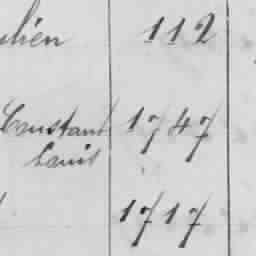 lien 112
Constant 1747
Louis
1717